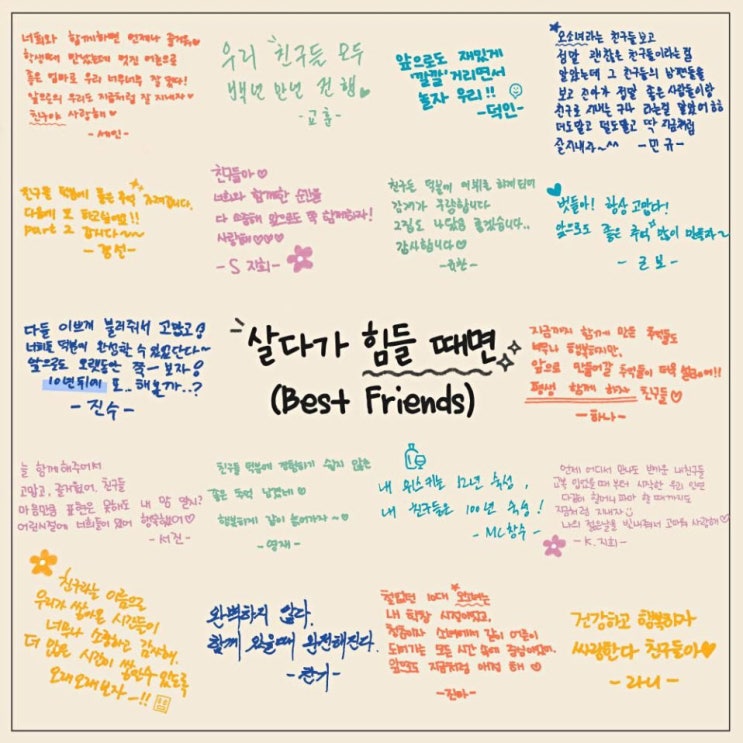 너희와 함께하면 언제나 즐거워♡
학생때 만났는데 멋진 어른으로
좋은 엄마로 우리 너무너무 잘 컸다!
앞으로의 우리도 지금처럼 잘 지내자♡
친구야 사랑해♡
-세인-
우리 친구들 모두
백년 만년 전 행♡
-교훈-
앞으로도 재밌게
'깔깔' 거리면서
놀자 우리!!
-덕인-
오소녀라는 친구들보고
정말 괜찮은 친구들이라는걸
알았는데 그 친구들의 남편들을
보고 진아가 정말 좋은 사람들이랑
친구로 지내는 구나 라는걸 알았어 ㅎㅎ
더도말고 덜도말고 딱 지금처럼
잘지내자~^^ -민규-
친구들 덕분에 좋은 추억
다음에 또 하고싶어요!!
part 2 갑니다~~
-경선-
친구들아♡
너희와 함께한 순간들
다 소중해 앞으로도 쭉 함께하자!
사랑해♡♡♡
-S 지희-
친구들 덕분에 이 하게되어
감개가 무량합니다
2집도 나왔음 좋겠습니다..
감사합니다♡
-윤환-
벗들아! 항상 고맙다!
앞으로도 좋은 추억 많이 만들자~
-근보-
다들 이쁘게 불러줘서 고맙고!
너희들 덕분에 완성할 수 있었단다~
앞으로도 오랫동안 쭉- 보자!
10년뒤에 또.. 해볼까..?
-진수-
살다가 힘들 때면
(Best Friends)
지금까지 함께 만든 추억들도
너무나 행복하지만,
앞으로 만들어갈 추억들이 더욱 설레어!!
평생 함께 하자 친구들♡
-하나-
늘 함께해주어서
고맙고, 즐거웠어. 친구들
마음만큼 표현은 못해도 내 맘 알지?
어린시절에 너희들이 있어 행복했어♡
-서진-
친구들 덕분에 경험하기 쉽지 않은
좋은 추억 남겼네♡
행복하게 같이 늙어가자~♡
-영재-
내 위스키는 12년 숙성,
내 친구들은 100년 숙성!
-MC창수-
언제 어디서 만나도 반가운 내친구들
교복 입었을 때 부터 시작한 우리 인연
다같이 할머니 파마 할 때까지도
지금처럼 지내자
나의 젊은날을 빛내줘서 고마워 사랑해♡
-K.지희-
친구라는 이름으로
우리가 쌓아온 시간들이
너무나 소중하고 감사해.
더 많은 시간이 쌓일수 있도록
오래오래보자-!!
완벽하지 않다.
함께 있을때 완전해진다.
-찬기-
철없던 10대 오소녀는
내 학창 시절이었고,
청춘이자 소녀에서 같이 어른이
되어가는 모든 시간 속에 중심이었다.
앞으로도 지금처럼 애정 해♡
-진아-
건강하고 행복하자
싸랑한다 친구들아♡
-라니-